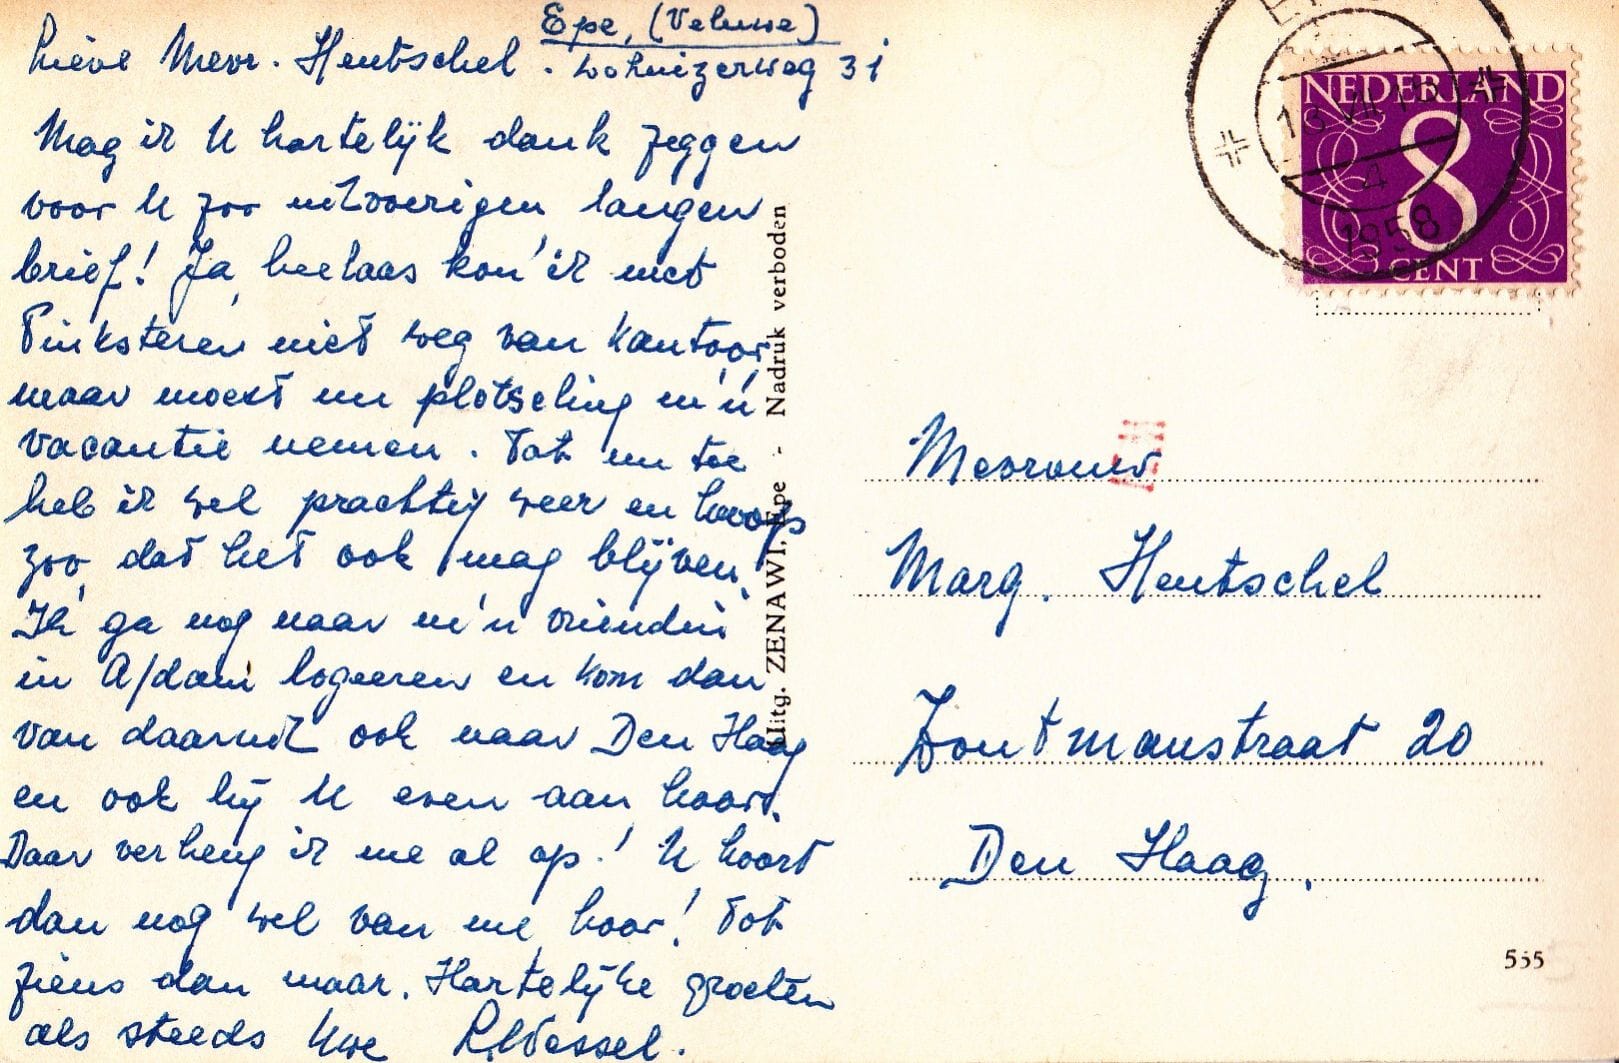 Epe, (Veluwe)
Lohuizerweg 31
Lieve Mevr. Hentschel.
Mag ik U hartelijk dank zeggen
voor U zoo uitvoerigen langen
brief! Ja, heelaas kon ik met
Pinksteren niet weg van kantoor,
maar moest nu plotseling m'n
vacantie nemen. Tot nu toe
heb ik wel prachtig weer en hoop
zoo, dat het ook mag blijven.
Ik ga nog naar m'n vriendin
in A/dam logeeren en kom dan
van daaruit ook naar Den Haag
en ook bij U even aan, hoor.
Daar verheug ik me al op! U hoort
dan nog wel van me, hoor! Tot
ziens dan maar. Hartelijke groeten
als steeds Uwe
Uitg. ZENAWI, Epe - Nadruk verboden
NEDERLAND
8
CENT
4
1958
Mevrouw
Marg. Hentschel
Zoutmanstraat 20
Den Haag.
555